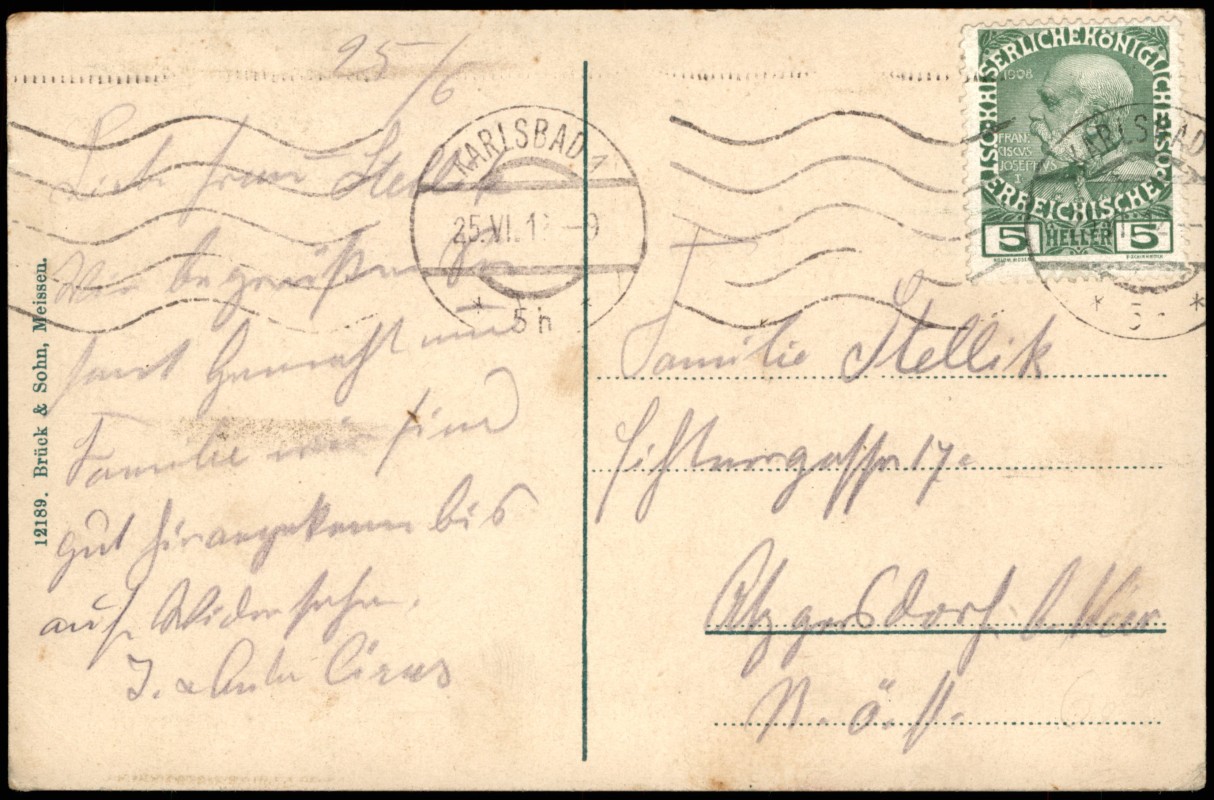 25/6
Liebe Frau Stellik
Wir begrüßen Sie
samt Gemahl und
Familie wir sind
gut hirangekomm bis
auf Widersehn.
J. &
12189. Brück & Sohn, Meissen.
KARLSBAD 1
25.VI.1 -9
5h
KAISERLICHE KÖNIGLICHE ÖSTERREICHISCHE POST
1908
FRAN
CISCVS
JOSEPHVS
I.
5 HELLER 5
KARLSBAD
Familie Stellik
gasse 17.
Atzgersdorf b. Wien
N. Ö.